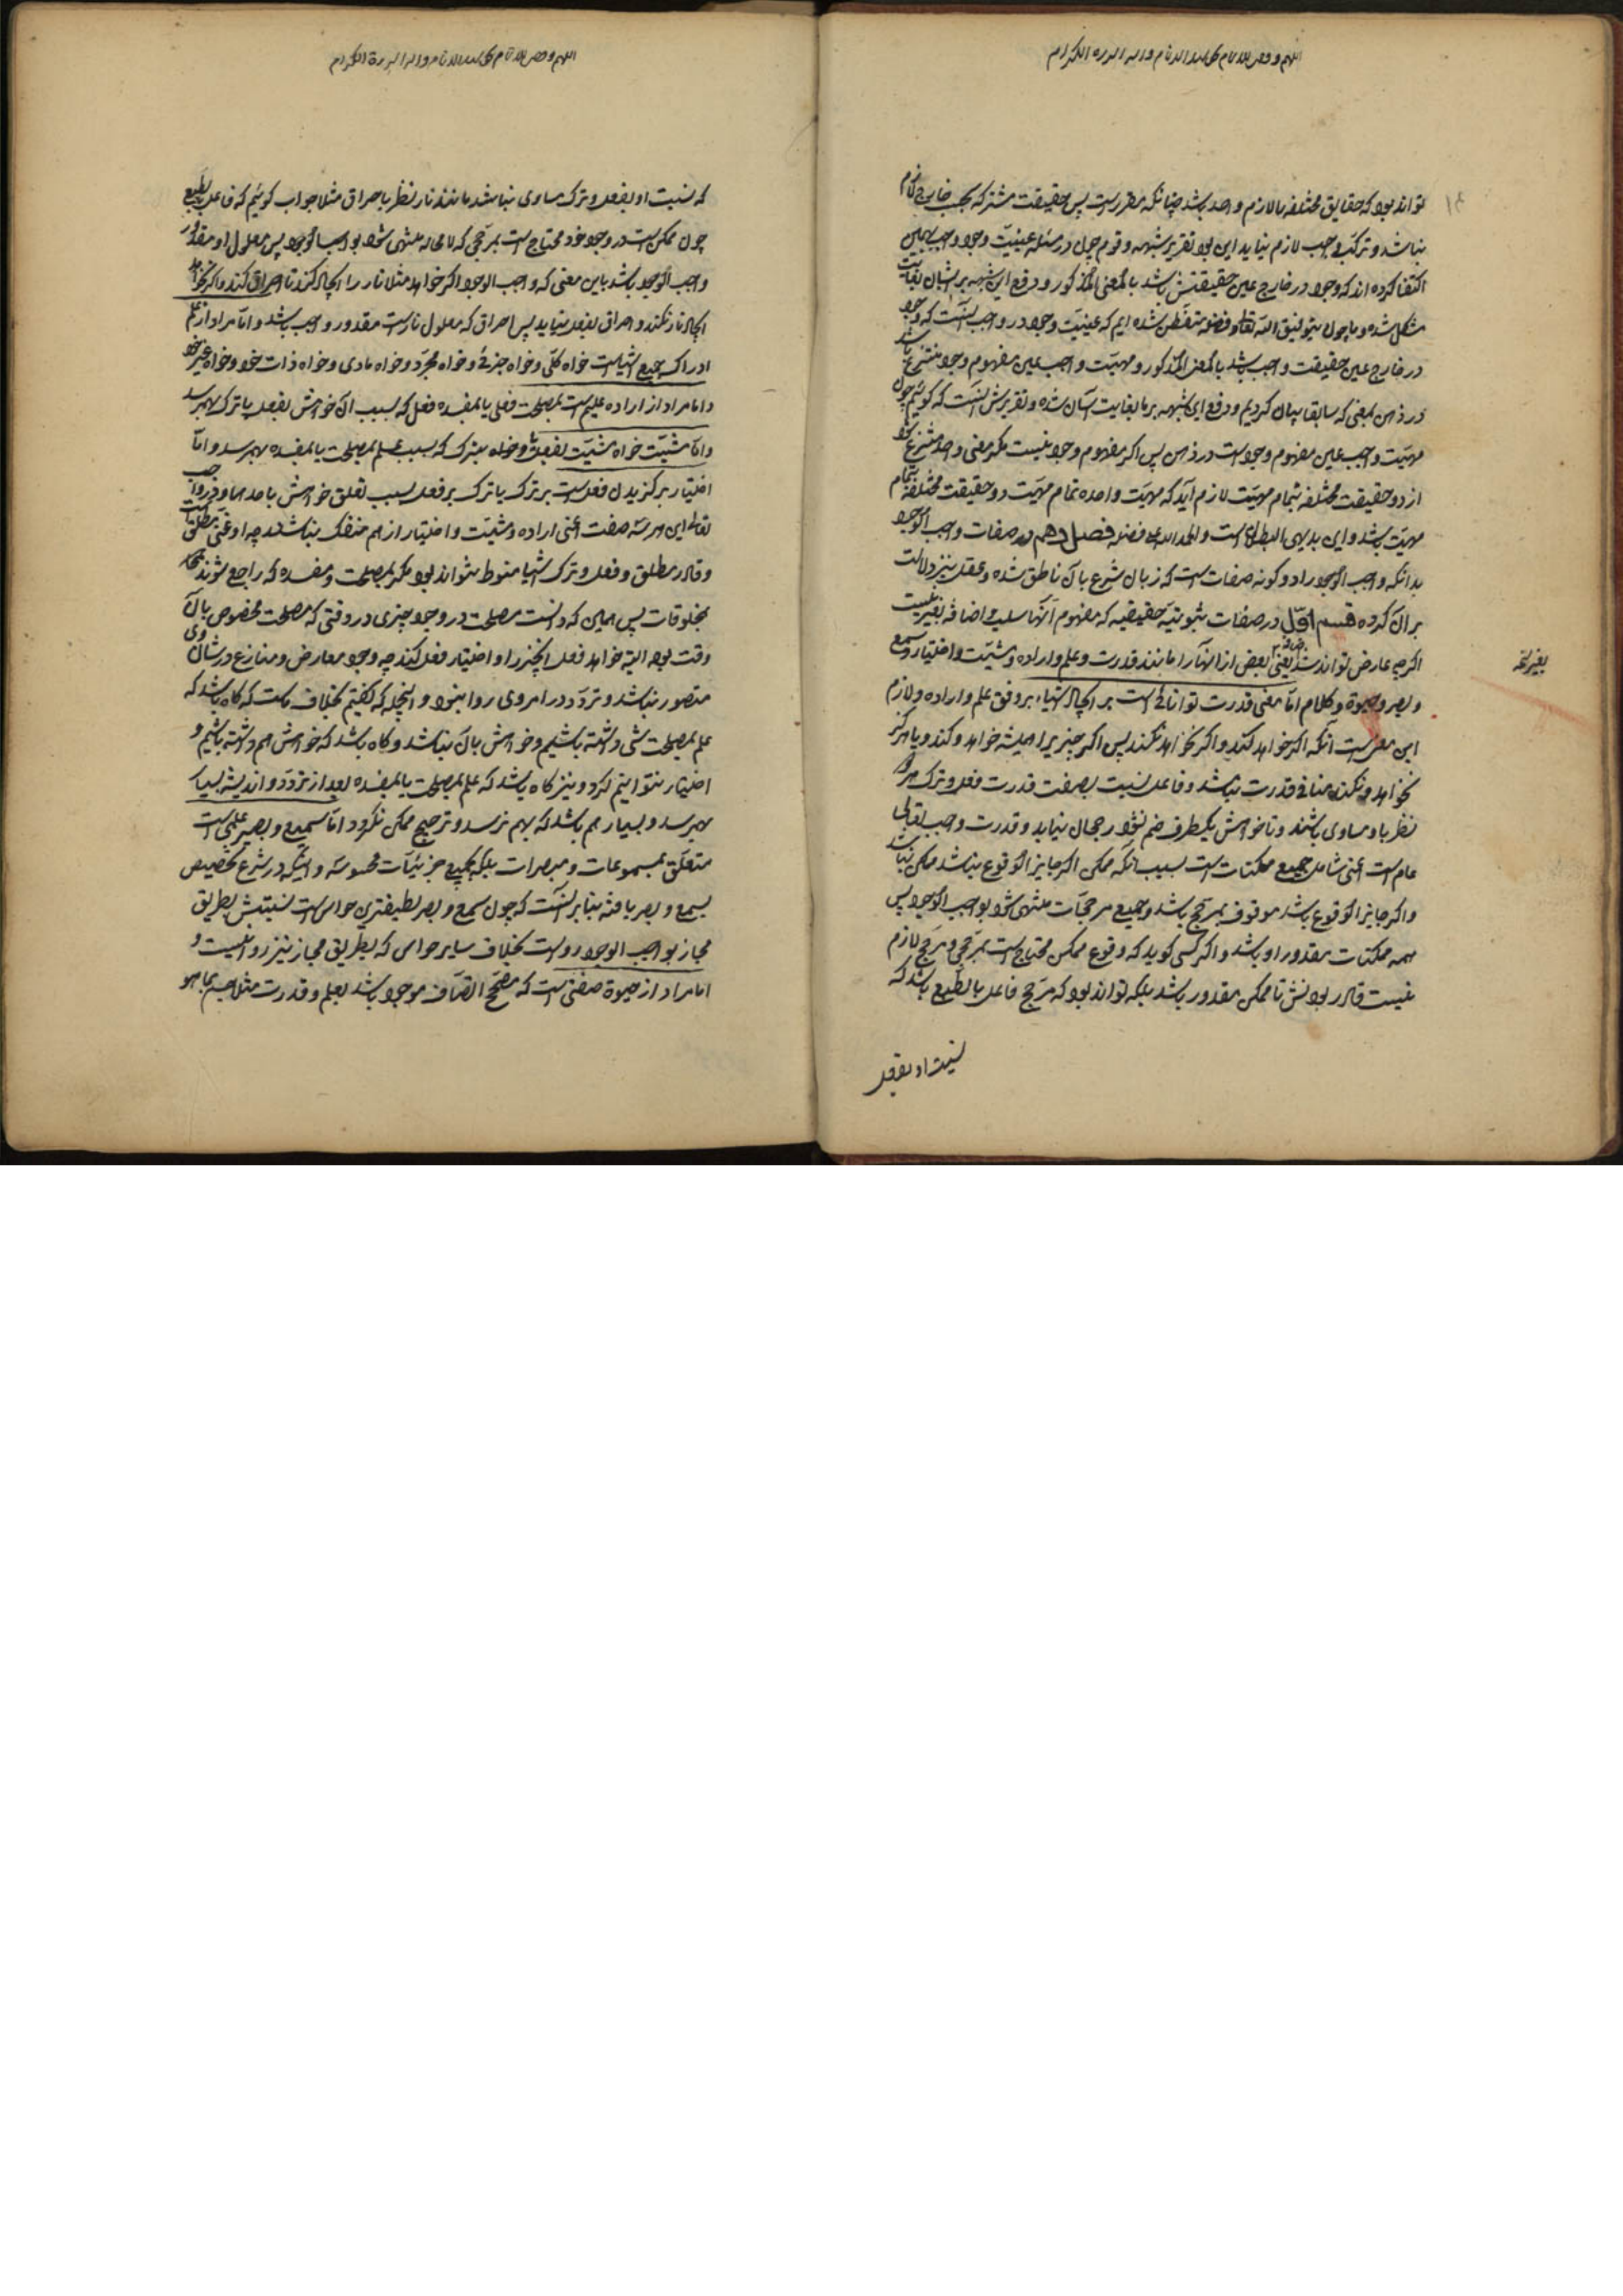 تواند بود که حقایق مختلفه بالازم واحد باشد چنانکه مقرر است پس حقیقت مشترکه بحسب خارج لازم
نباشد و ترکب واجب لازم نیاید این بود تقریر شبهه و قوم چون در مسئله عینیت وجود واجب بهمین
اکتفا کرده اند که وجود در خارج عین حقیقتش باشد بالمعنی المذکور و دفع این شبهه بر ایشان بغایت
مشکل شده و ما چون بتوفیق الله تعالی و فضله متفطن شده ایم که عینیت وجود در واجب آنست که وجود
در خارج عین حقیقت واجب باشد بالمعنی المذکور و مهیت واجب عین مفهوم وجود منتزع باشد
در ذهن بمعنی که سابقا بیان کردیم و دفع این شبهه بر ما بغایت آسان شده و تقریرش آنست که گوئیم چون
مهیت واجب عین مفهوم وجود است در ذهن پس اگر مفهوم وجود نیست مگر معنی واحد منتزع شود
از دو حقیقت مختلفه بتمام مهیت لازم آید که مهیت واحده تمام مهیت دو حقیقت مختلفه بتمام
مهیت باشد و این بدیهی البطلان است و الحمد لله علی فضله فصل دهم در صفات واجب الوجود
بدانکه واجب الوجود را دو گونه صفات است که زبان شرع بآن ناطق شده و عقل نیز دلالت
بر آن کرده قسم اول در صفات ثبوتیه حقیقیه که مفهوم آنها سلب و اضافه بغیر نیست
اگرچه عارض تواند شد یعنی بعض از آنها را مانند قدرت و علم و اراده و مشیت و اختیار و سمع
و بصر و حیوة و کلام اما معنی قدرت توانائی است بر ایجاد اشیاء بر وفق علم و اراده و لازم
این معنی است آنکه اگر خواهد کند و اگر نخواهد نکند پس اگر چیزیرا همیشه خواهد و کند و یا هرگز
نخواهد و نکند منافی قدرت نباشد و فاعل نسبت بصفت قدرت فعل و ترک هر دو
نظر باو مساوی باشند و تا خواهش بیکطرف ضم نشود رجحان نیابد و قدرت واجب تعالی
عام است اعنی شامل جمیع ممکنات است بسبب آنکه ممکن اگر جایز الوقوع نباشد ممکن نباشد
و اگر جایز الوقوع باشد موقوف بمرجح باشد و جمیع مرجحات منتهی شود بواجب الوجود پس
همه ممکنات مقدور او باشد و اگر کسی گوید که وقوع ممکن محتاج است بمرجحی و مرجح لازم
نیست قادر بودنش تا ممکن مقدور باشد بلکه تواند بود که مرجح فاعل بالطبع باشد که
نسبت او بفعل
که نسبت او بفعل و ترک مساوی نباشد مانند نار نظر باحراق مثلا جواب گوئیم که فاعل بالطبع
چون ممکن است در وجود خود محتاج است بمرجحی که لا محاله منتهی شود بواجب الوجود پس معلول او مقدور
واجب الوجود باشد باین معنی که واجب الوجود اگر خواهد مثلا نار را ایجاد کند تا احراق کند و اگر نخواهد
ایجاد نار نکند و احراق بفعل نیاید پس احراق که معلول نار است مقدور واجب باشد و اما مراد از علم
ادراک جمیع اشیاست خواه کلی و خواه جزئی و خواه مجرد و خواه مادی و خواه ذات خود و خواه غیر خود
و اما مراد از اراده علم است بمصلحت فعلی یا بمفسده فعل که بسبب آن خواهش بفعل یا ترک بهم رسد
و اما مشیت خواه مشیت بفعل و خواه بترک که بسبب علم بمصلحت یا بمفسده بهم رسد و اما
اختیار برگزیدن فعل است بر ترک یا ترک بر فعل بسبب تعلق خواهش باحدهما و در واجب
تعالی این هر سه صفت اعنی اراده و مشیت و اختیار از هم منفک نباشد چه او غنی مطلق است
و قادر مطلق و فعل و ترک اشیا منوط نتواند بود مگر بمصلحت و مفسده که راجع شوند
بمخلوقات پس همین که دانست مصلحت در وجود چیزی در وقتی که مصلحت مخصوص بآن
وقت بود البته خواهد فعل آنچیز را و اختیار فعل کند چه وجود معارض و منازع در شان وی
متصور نباشد و تردد در امر وی روا نبود و اینجمله که گفتیم بخلاف ماست که گاه باشد که
علم بمصلحت شی داشته باشیم و خواهش بآن نباشد و گاه باشد که خواهش هم داشته باشیم و
اختیار نتوانیم کرد و نیز گاه باشد که علم بمصلحت یا بمفسده بعد از تردد و اندیشه بسیار
بهم رسد و بسیار هم باشد که بهم نرسد و ترجیح ممکن نگردد اما سمیع و بصیر علمی است
متعلق بمسموعات و مبصرات بلکه بجمیع جزئیات محسوسه و اینکه در شرع تخصیص
بسمع و بصر یافته بنابر آنست که چون سمع و بصر لطیفترین حواس است نسبتش بطریق
مجاز بواجب الوجود رواست بخلاف سایر حواس که بطریق مجاز نیز روا نیست و
اما مراد از حیوة صفتی است که مصحح اتصاف موجود باشد بعلم و قدرت مثلا جسم بما هو